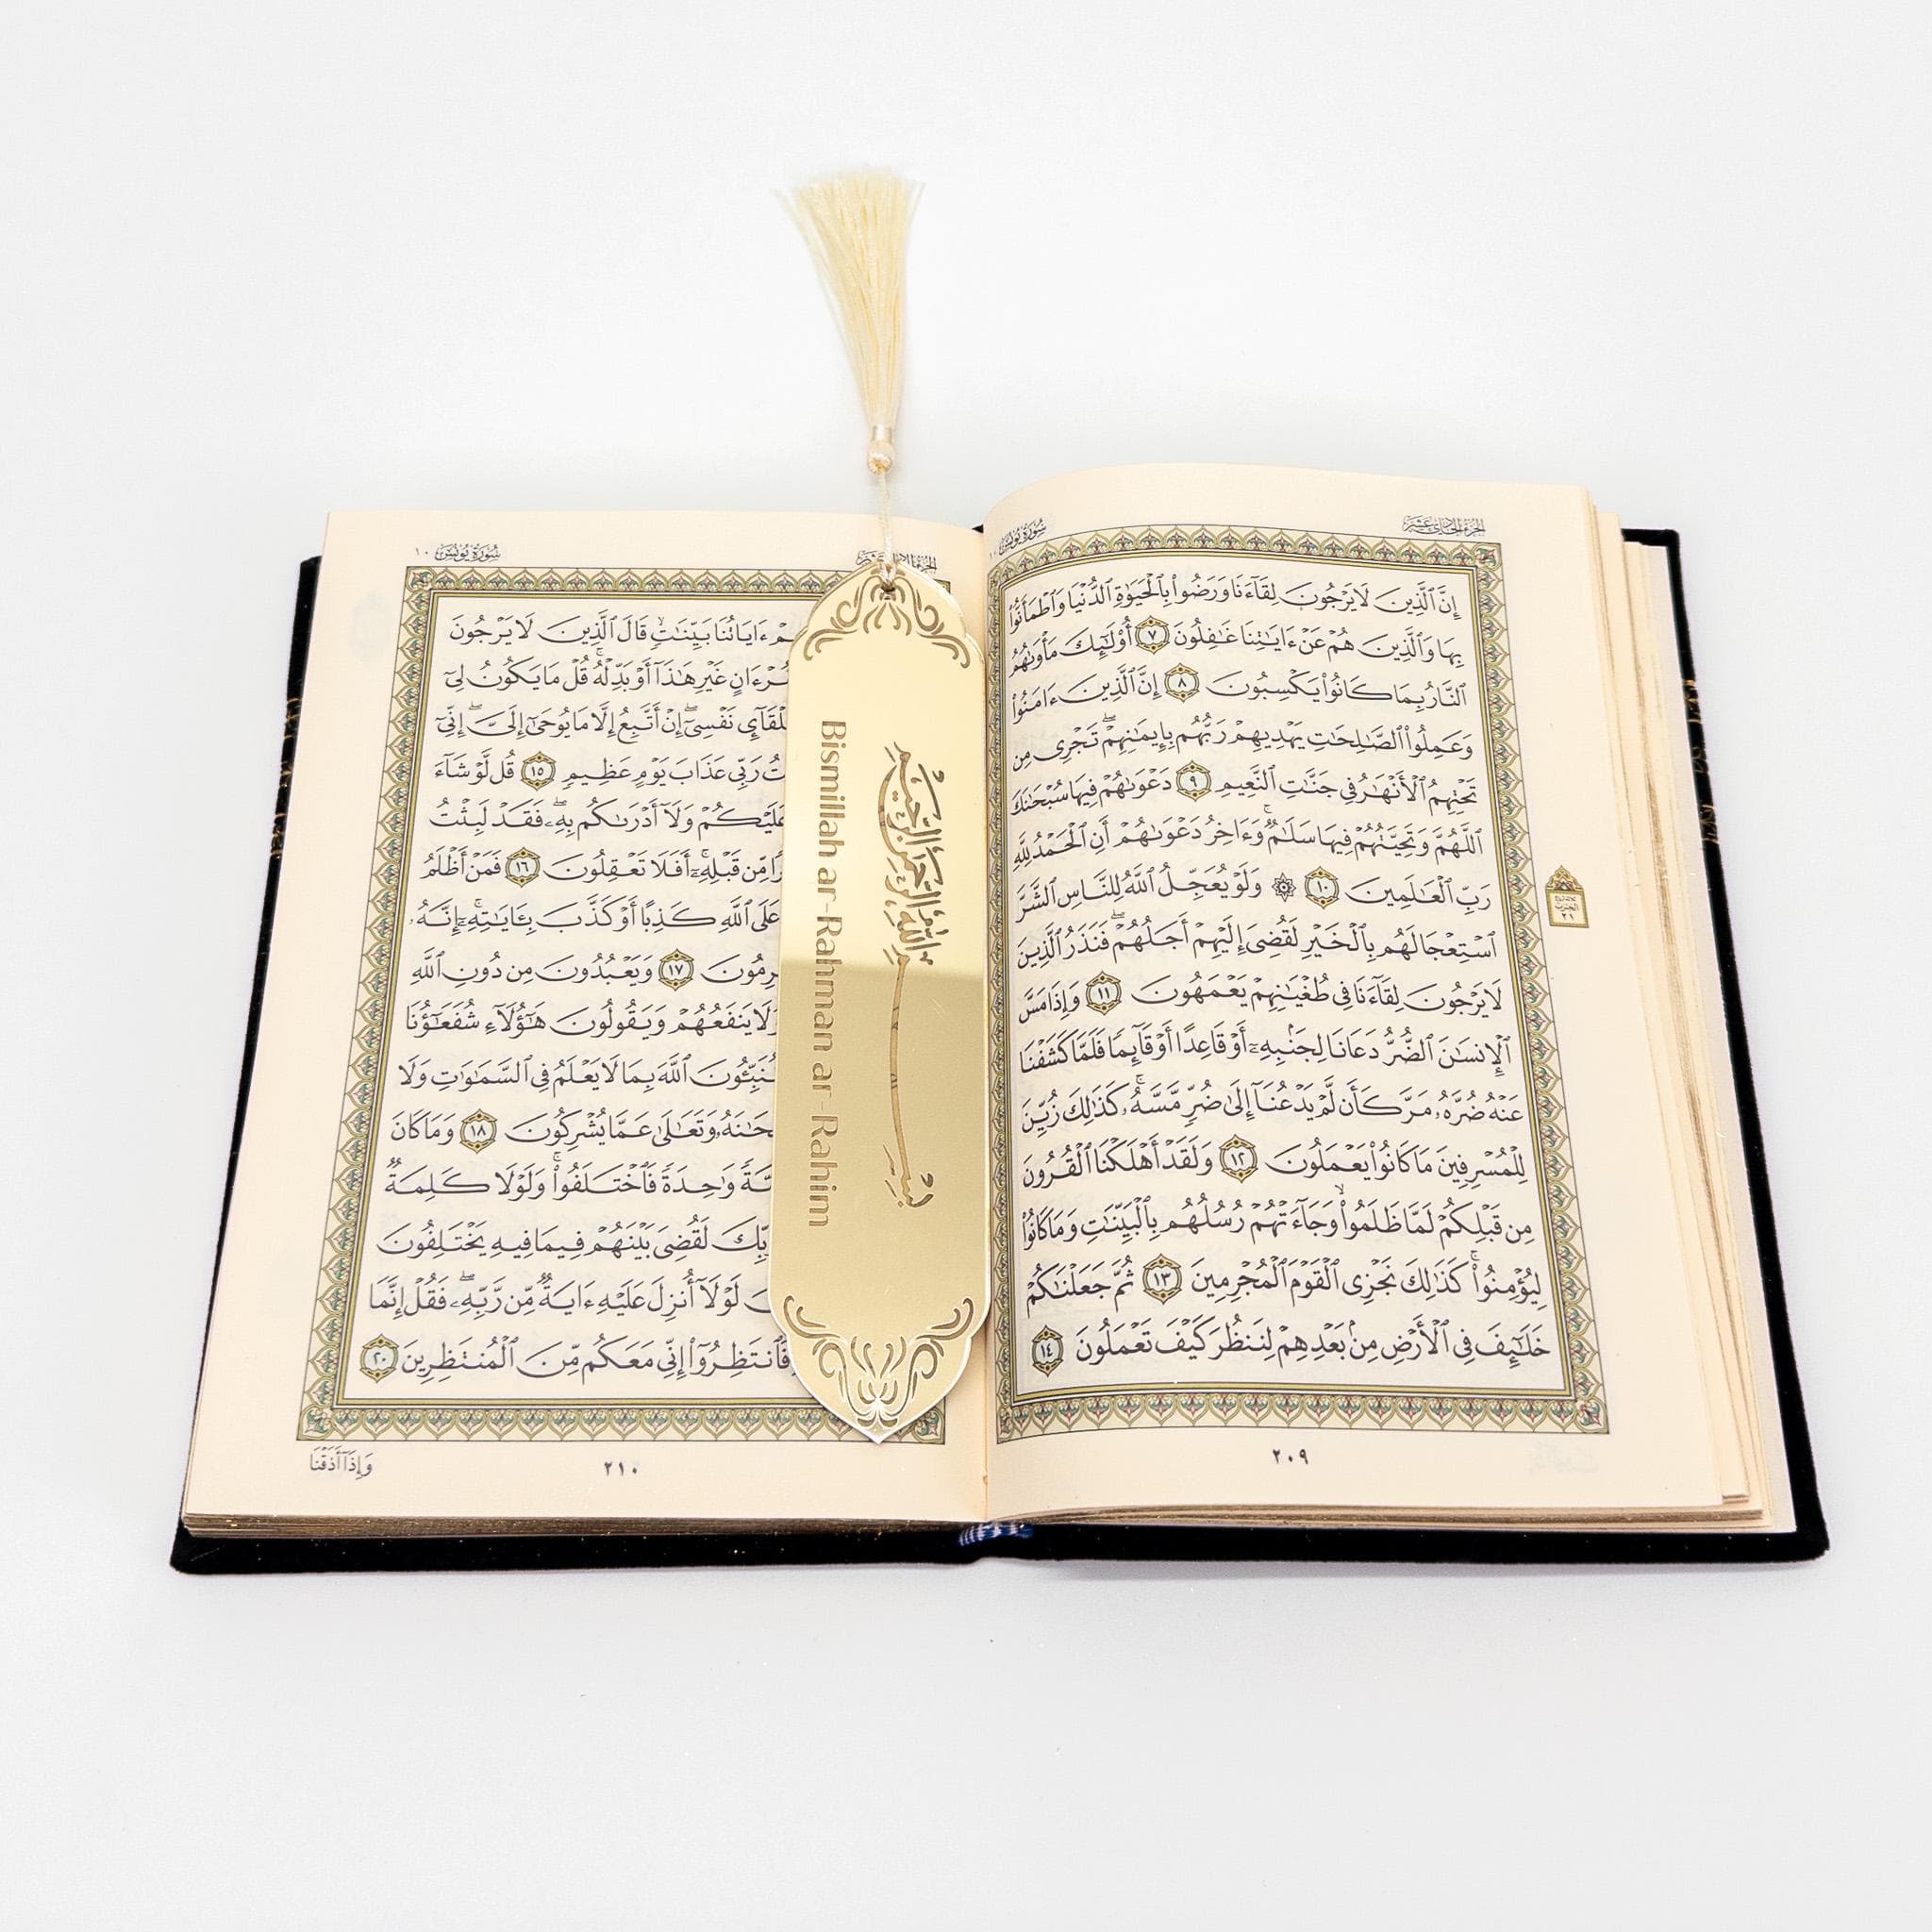 الجزء الحادي عشر
سورة يونس
إِنَّ ٱلَّذِينَ لَا يَرْجُونَ لِقَآءَنَا وَرَضُوا۟ بِٱلْحَيَوٰةِ ٱلدُّنْيَا وَٱطْمَأَنُّوا۟
بِهَا وَٱلَّذِينَ هُمْ عَنْ ءَايَـٰتِنَا غَـٰفِلُونَ ٧ أُو۟لَـٰٓئِكَ مَأْوَىٰهُمُ
ٱلنَّارُ بِمَا كَانُوا۟ يَكْسِبُونَ ٨ إِنَّ ٱلَّذِينَ ءَامَنُوا۟
وَعَمِلُوا۟ ٱلصَّـٰلِحَـٰتِ يَهْدِيهِمْ رَبُّهُم بِإِيمَـٰنِهِمْ ۖ تَجْرِى مِن
تَحْتِهِمُ ٱلْأَنْهَـٰرُ فِى جَنَّـٰتِ ٱلنَّعِيمِ ٩ دَعْوَىٰهُمْ فِيهَا سُبْحَـٰنَكَ
ٱللَّهُمَّ وَتَحِيَّتُهُمْ فِيهَا سَلَـٰمٌ ۚ وَءَاخِرُ دَعْوَىٰهُمْ أَنِ ٱلْحَمْدُ لِلَّهِ
رَبِّ ٱلْعَـٰلَمِينَ ١٠ ۞ وَلَوْ يُعَجِّلُ ٱللَّهُ لِلنَّاسِ ٱلشَّرَّ
ٱسْتِعْجَالَهُم بِٱلْخَيْرِ لَقُضِىَ إِلَيْهِمْ أَجَلُهُمْ ۖ فَنَذَرُ ٱلَّذِينَ
لَا يَرْجُونَ لِقَآءَنَا فِى طُغْيَـٰنِهِمْ يَعْمَهُونَ ١١ وَإِذَا مَسَّ
ٱلْإِنسَـٰنَ ٱلضُّرُّ دَعَانَا لِجَنۢبِهِۦٓ أَوْ قَاعِدًا أَوْ قَآئِمًا فَلَمَّا كَشَفْنَا
عَنْهُ ضُرَّهُۥ مَرَّ كَأَن لَّمْ يَدْعُنَآ إِلَىٰ ضُرٍّ مَّسَّهُۥ ۚ كَذَٰلِكَ زُيِّنَ
لِلْمُسْرِفِينَ مَا كَانُوا۟ يَعْمَلُونَ ١٢ وَلَقَدْ أَهْلَكْنَا ٱلْقُرُونَ
مِن قَبْلِكُمْ لَمَّا ظَلَمُوا۟ ۙ وَجَآءَتْهُمْ رُسُلُهُم بِٱلْبَيِّنَـٰتِ وَمَا كَانُوا۟
لِيُؤْمِنُوا۟ ۚ كَذَٰلِكَ نَجْزِى ٱلْقَوْمَ ٱلْمُجْرِمِينَ ١٣ ثُمَّ جَعَلْنَـٰكُمْ
خَلَـٰٓئِفَ فِى ٱلْأَرْضِ مِنۢ بَعْدِهِمْ لِنَنظُرَ كَيْفَ تَعْمَلُونَ ١٤
٢٠٩
الحزب
٢١
سورة يونس ١٠
ءَايَاتُنَا بَيِّنَـٰتٍ ۙ قَالَ ٱلَّذِينَ لَا يَرْجُونَ
غَيْرِ هَـٰذَآ أَوْ بَدِّلْهُ ۚ قُلْ مَا يَكُونُ لِىٓ
نَفْسِىٓ ۖ إِنْ أَتَّبِعُ إِلَّا مَا يُوحَىٰٓ إِلَىَّ ۖ إِنِّىٓ
رَبِّى عَذَابَ يَوْمٍ عَظِيمٍ ١٥ قُل لَّوْ شَآءَ
عَلَيْكُمْ وَلَآ أَدْرَىٰكُم بِهِۦ ۖ فَقَدْ لَبِثْتُ
مِّن قَبْلِهِۦٓ ۚ أَفَلَا تَعْقِلُونَ ١٦ فَمَنْ أَظْلَمُ
عَلَى ٱللَّهِ كَذِبًا أَوْ كَذَّبَ بِـَٔايَـٰتِهِۦٓ ۚ إِنَّهُۥ
١٧ وَيَعْبُدُونَ مِن دُونِ ٱللَّهِ
وَلَا يَنفَعُهُمْ وَيَقُولُونَ هَـٰٓؤُلَآءِ شُفَعَـٰٓؤُنَا
ٱللَّهَ بِمَا لَا يَعْلَمُ فِى ٱلسَّمَـٰوَٰتِ وَلَا
وَتَعَـٰلَىٰ عَمَّا يُشْرِكُونَ ١٨ وَمَا كَانَ
وَٰحِدَةً فَٱخْتَلَفُوا۟ ۚ وَلَوْلَا كَلِمَةٌ
لَقُضِىَ بَيْنَهُمْ فِيمَا فِيهِ يَخْتَلِفُونَ
لَوْلَآ أُنزِلَ عَلَيْهِ ءَايَةٌ مِّن رَّبِّهِۦ ۖ فَقُلْ إِنَّمَا
فَٱنتَظِرُوٓا۟ إِنِّى مَعَكُم مِّنَ ٱلْمُنتَظِرِينَ ٢٠
وَإِذَآ أَذَقْنَا
٢١٠
بسم الله الرحمن الرحيم
Bismillah ar-Rahman ar-Rahim